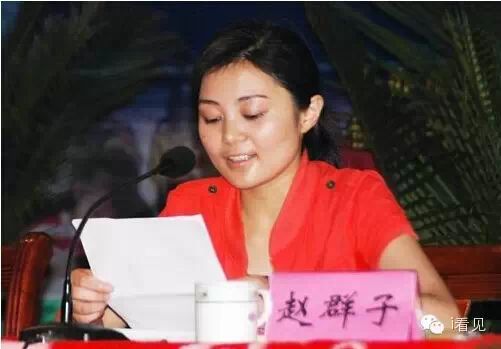 赵群子
i看见